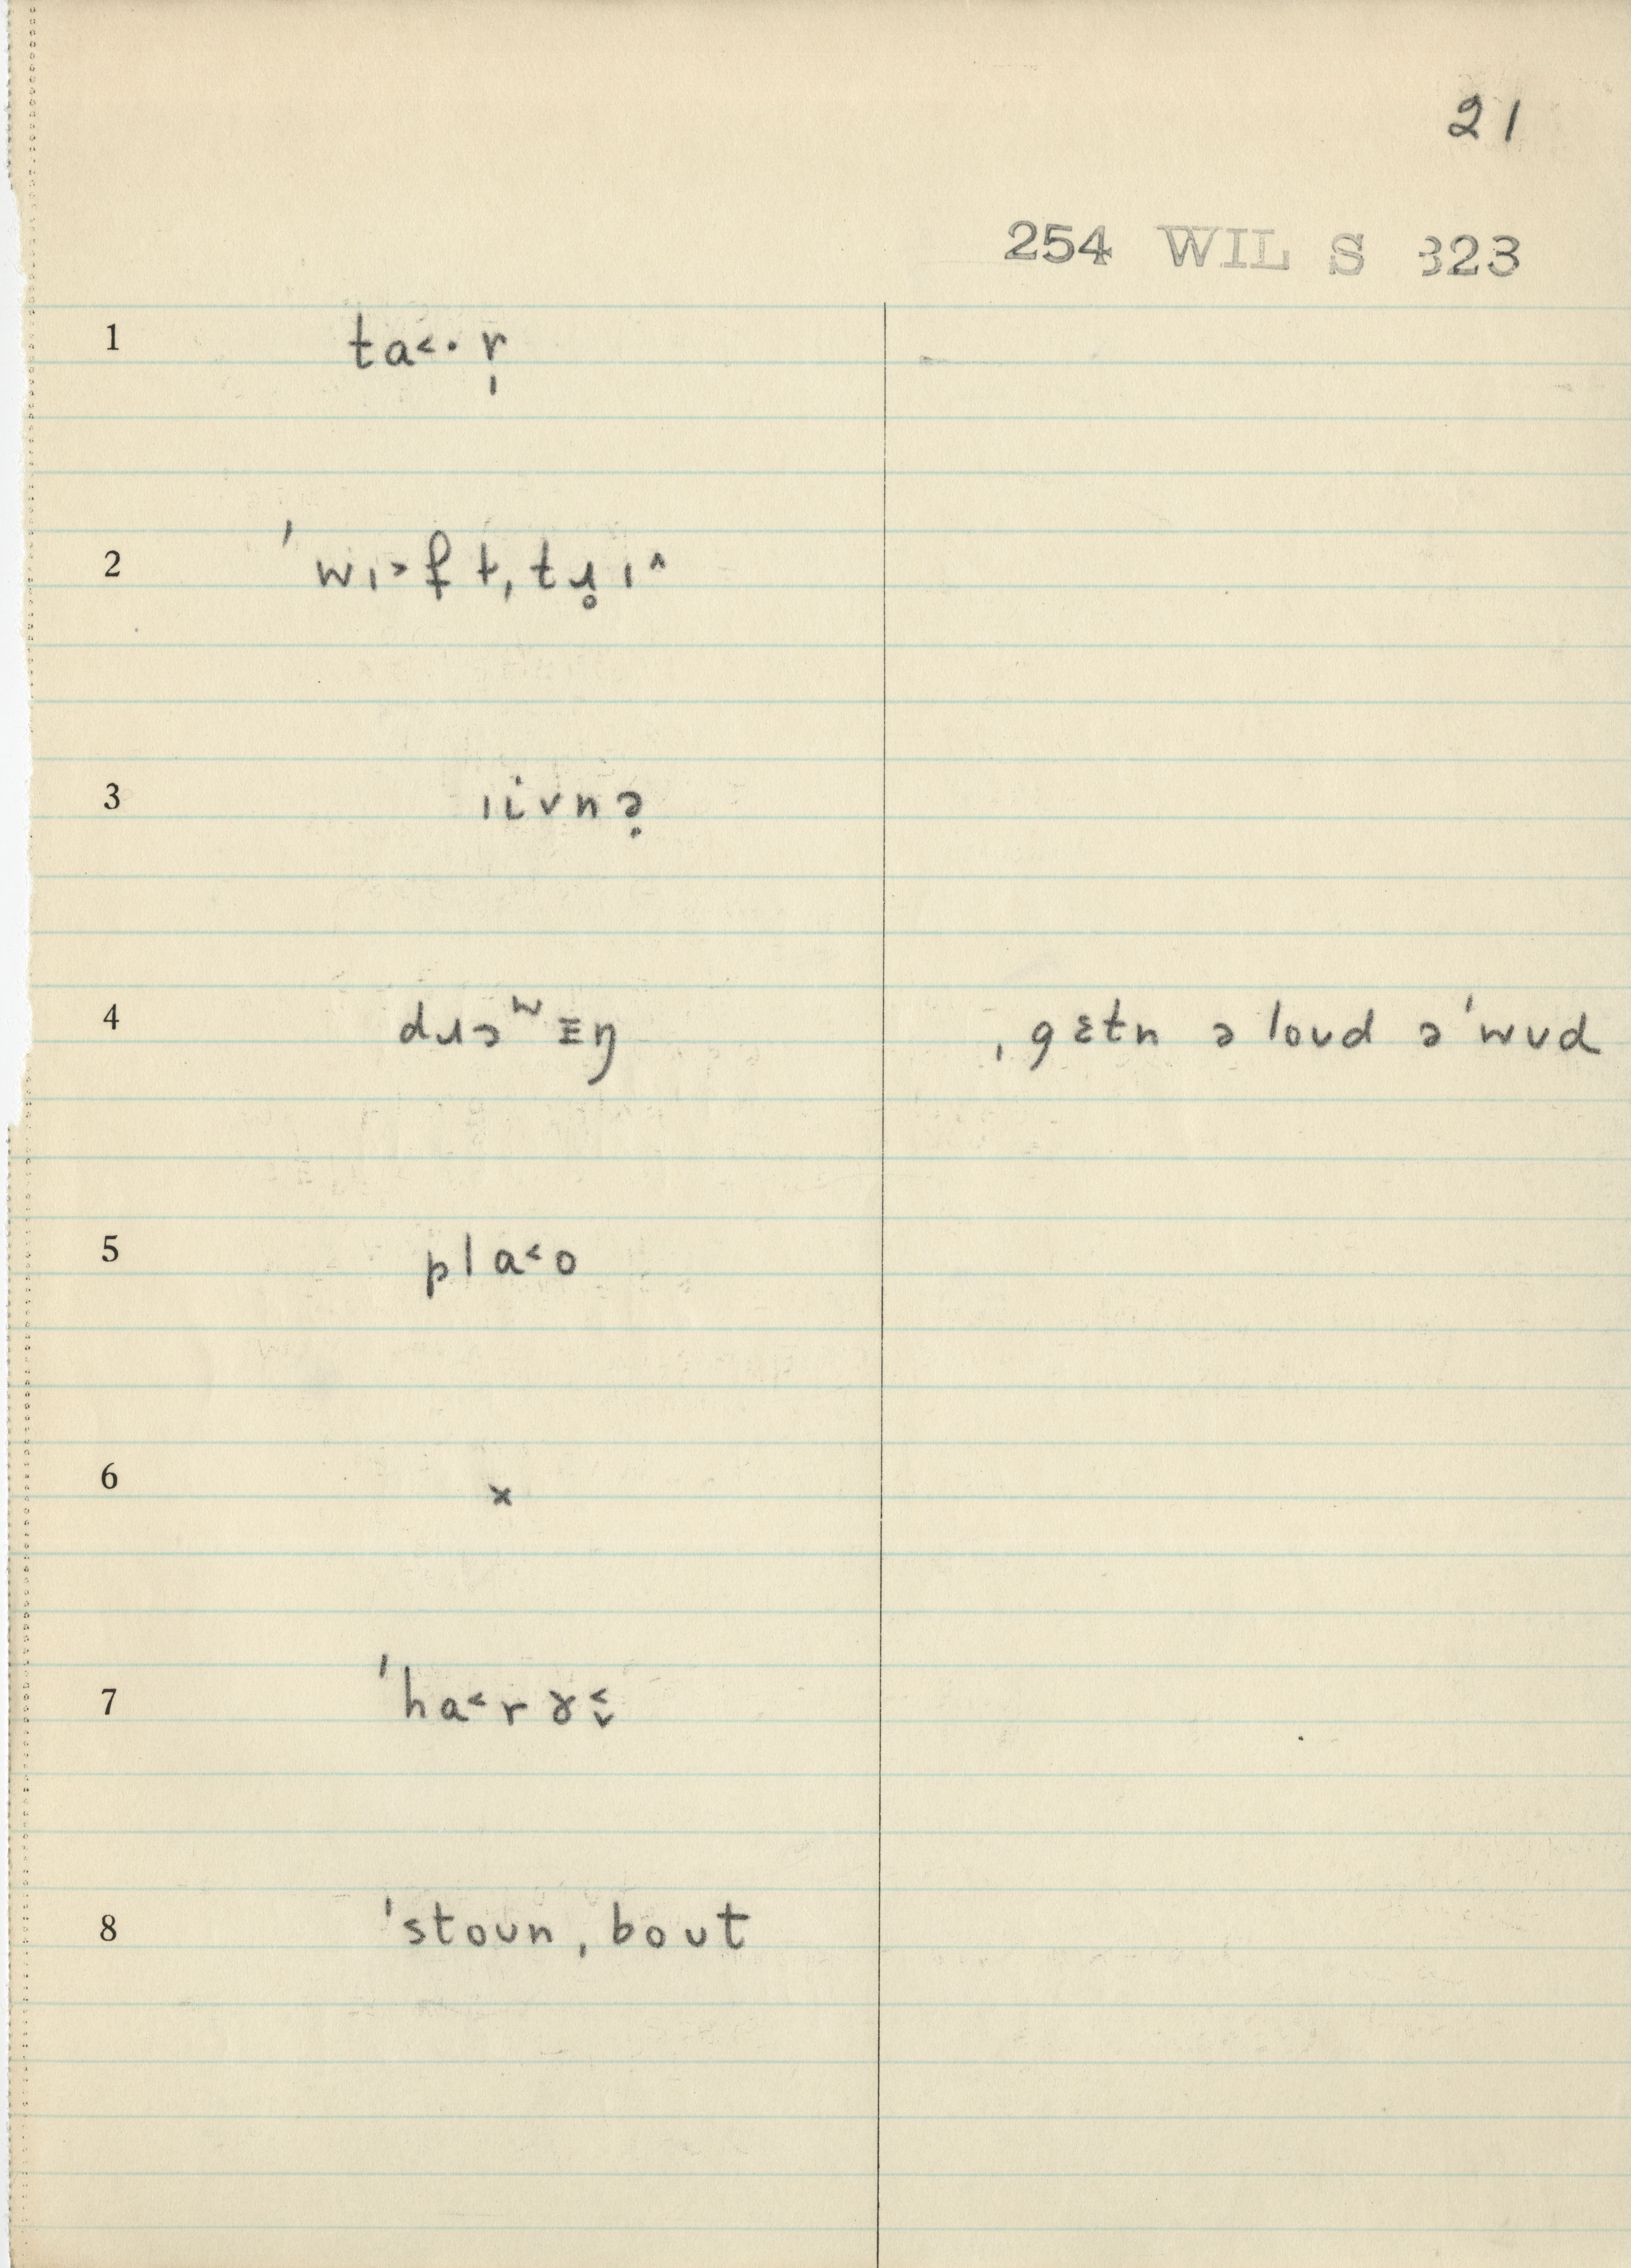 21
254 WIL S 323
1 ta˂· r̩
2 ˈwɪ˃f t̩ˌtɹ̥ɪ˄
3 ɹivnə̣
4 dɹɔʷɪŋ ˌgɛtn ə loʊd ə ˈwʊd
5 pla˂o
6 x
7 ˈha˂rɤ˂˅
8 ˈstoʊnˌboʊt